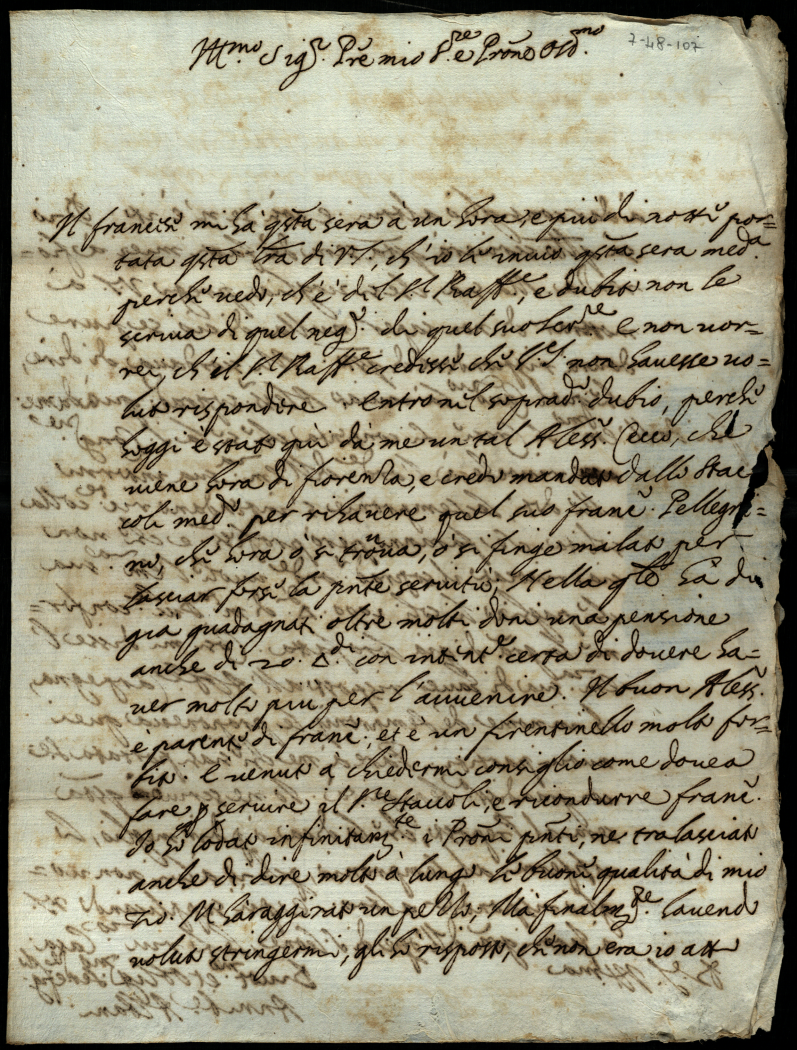 7-48-107
Ill.mo Sig.r Prẽ mio S.re e Prõne Oss.mo
Il francisi mi hà qsta sera à un hora, e piú di notti por=
tata qsta lrã di VS., ch'io li inuio qsta sera med.a
perchi uedo, ch'è dil S.r Raff.e, e dubito non le
scriua di quel neg.o di quel suo Ser.re E non uor=
rei, ch'il S.r Raff.e credissi chi V.S. non hauesse uo=
luto rispondere. Entro nil soprad.o dubio, perchi
hoggi è stato quì dà me un tal Aless.o Cecci, che
uiene hora di fiorenza, e credo mandato dallo Stac=
coli med.o per rihauere quel suo franc.o Pellegri=
no, chi hora ò si troua, ò si finge malato per
lasciar forsi la pnte seruitù, Nella qle hà di
già guadagnati oltre molti doni una pensione
anche di 20. Δ.di con intint.e certa di douere ha=
uer molto piu per l'auuenire. Il buon Aless.o
è parenti di franc.o, et è un firentinello molto for=
bito. E uenuto à chiedermi consiglio come douea
fare p seruire il S.re Staccoli, e ricondurre franc.o
Io hò lodato infinitam.te i Proni pnti, ne tralasciato
anche di dire molto à lungo li buoni qualità di mio
Zio. M'hà raggirato un pezzo, Mà finalm.te hauendo
uoluto stringermi, gli hò risposto, chi non era io atto